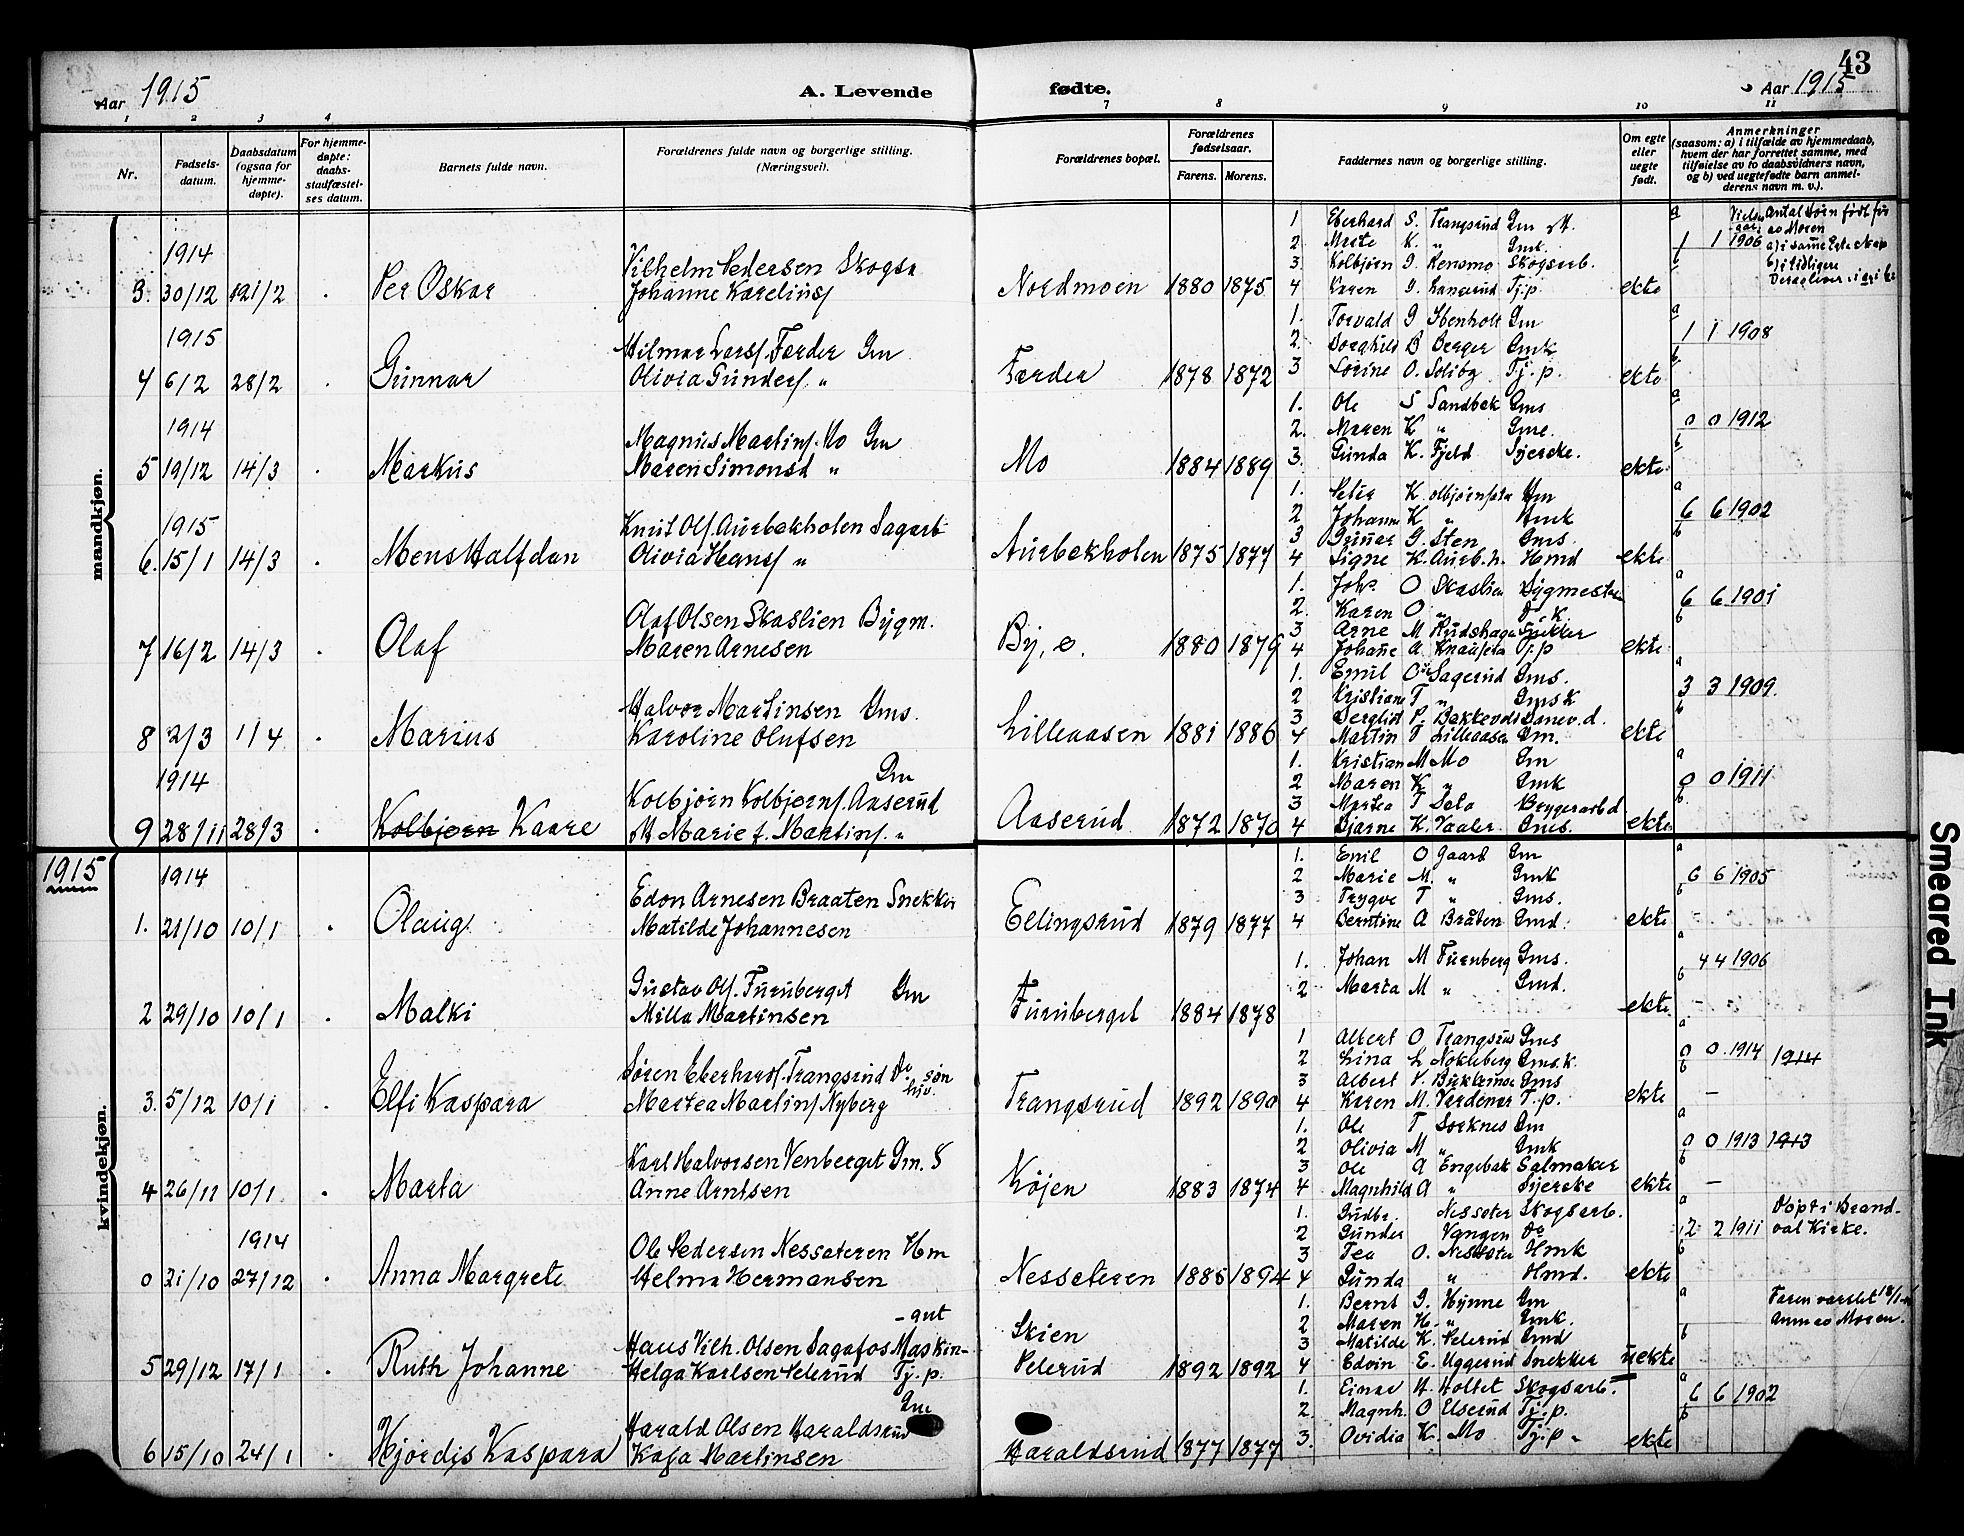 43
Aar 1915
A. Levende
fødte.
Aar 1915
1 2 3 4 7 8 9 10 11
Nr.
Fødsels-
datum.
Daabsdatum
(ogsaa for
hjemme-
døpte).
For hjemme-
døpte:
daabs-
stadfæstel-
ses datum.
Barnets fulde navn.
Forældrenes fulde navn og borgerlige stilling.
(Næringsvei).
Forældrenes bopæl.
Forældrenes
fødselsaar.
Farens. Morens.
Faddernes navn og borgerlige stilling.
Om egte
eller
uegte
født.
Anmerkninger
(saasom: a) i tilfælde av hjemmedaab,
hvem der har forrettet samme, med
tilføielse av to daabsvidners navn,
og b) ved uegtefødte barn anmel-
derens navn m. v.).
mandkjøn.
1914
Vilhelm Pedersen Skogsa
3. 30/12 21/2 Per Oskar Johanne Kareliusf Nordmoen 1880 1875 ekte
1 Eberhard S. Trangsrud Gm
2 Marte K. " Gmk.
3 Kolbjørn G. Renamo Skogsarb.
4 Karen G. Tj.p.
a 1 1 1906
b
Antal børn født før
av Moren
a) i samme Egteskap
b) i tidligere
1915
Hilmar Larsf. Færder Gm
4 6/2 28/2 Gunnar Olivia Gundersf. " Færder 1878 1872 ekte
1. Torvald G Ibenholt Gm
2. Borghild B Berger Gmk
3 Lorine O. Solibg Tj.p.
a 1 1 1908
b
1914
Magnus Martinsf. Mo Gm
5 19/12 14/3 Markus Maren Simonsd " Mo 1884 1889 ekte
1. Ole S Sandbæk Gms
2. Maren K " Gme.
3. Gunda K. Fjeld Syerske.
a 0 0 1912
b
1915
Knut Olf. Aurbekholen Sagarb
6. 15/1 14/3 Mens Halfdan Olivia Hansf " Aurbekholen 1875 1877 ekte
1. Peter K. Hm
2 Johanne K " Hmk
3 Gunnar G. Sten Gms.
4 Signe K. Aurb.h. Hmd
a 6 6 1902
b
Olaf Olsen Skaslien Bygm.
7 16/2 14/3 Olaf Maren Arnesen By, ø. 1880 1879 ekte
1. Johs. O Skaslien Bygmester
2. Karen O " k.
3 Arne M Rudshagen Snekker
4 Johanne A. Tj.p
a 6 6 1901
b
Halvor Martinsen Gms.
8 2/3 1/4 Marius Karoline Olufsen Lilleaasen 1881 1886 ekte
1. Emil O Sagerud Gms.
2 Kristiane T " Gms K
3 P. Bakkevold Banev.d.
4 Martin T Lilleaasen Gm.
a 3 3 1909.
b
1914 Gm
Kolbjørn Kolbjørnsf. Aaserud
9 28/11 28/3 Kolbjørn Kaare M Marie f. Martinsf. " Aaserud 1872 1870 ekte
1. Kristian M Mo Gm
2 Maren K " Gmk
3 Martea T Selo Bryggerarbd
4 Bjarne K. Vaaler. Gms.
a 0 0 1911
b
1915
kvindekjøn.
1914
Edon Arnesen Braaten Snekker
1. 21/10 10/1 Olaug Matilde Johannesen Ellingsrud 1879 1877 ekte
1. Emil O Gaard Gm
2 Marie M. " Gmk
3 Trygve T " Gms.
4 Berntine A Bråten Gmd.
a 6 6 1905
b
Gustav Olf. Furuberget Gm
2 29/10 10/1 Malki Milla Martinsen Furuberget 1884 1878 ekte
1. Johan M Furuberg Gms.
2 Marta M " Gmd.
a 4 4 1906
b
Søren Eberhardsf. Trangsrud Do søn
3. 5/12 10/1 Elfi Kaspara Martea Martinsf Nyberg Trangsrud 1892 1890 ekte
1 Albert O Trangsrud Gms
2 Lina L Nokleberg Gms.k.
3 Albert P. Gms
4 Karen M. Verdenær T.p.
a 0 0 1914 1914
b —
Karl Halvorsen Venberget Gm. S
4 26/11 10/1 Marta Anne Arntsen Løjen 1883 1874 ekte
1. Ole T Sorknes Gm
2 Olivia M " Gmk
3 Ole A Engebak Salmaker
4 Magnhild A " Syerske
a 0 0 1913 1913
b —
1914
Ole Pedersen Nesseteren Hm
0 21/10 27/12 Anna Margrete Helma Hermansen Nesseteren 1885 1894 ekte
1. Gudbr. Nesseter Skogsarb.
2 Gunder Vangen Do
3 Tea O. Nesseter Hmk
4 Gunda " Hmd.
a 2 2 1911
b
Døpt i Brand-
val Kirke.
-gut
Haus Vilh. Olsen Sagafos Maskin-
5 29/12 17/1 Ruth Johanne Helga Karlsen Pelerud Tj.p.
Skien
Pelerud 1892 1892 uekte
1. Bernt G. Hynne Gm
2 Maren H. " Gmk.
3 Matilde K. Pelerud Gmd
4 Edvin E. Uggerud Snekker
a
b
Faren varslet
anm av Moren.
Gm
Harald Olsen Haraldsrud
6 15/10 24/1 Hjørdis Kaspara Kaja Martinsen Haraldsrud 1877 1877 ekte
1. Einar H. Holtet Skogsarb.
2. Magnh. O Elserud Tj.p.
3. Ovidia K. Mo Tj.p.
a 6 6 1902
b
Smeared Ink